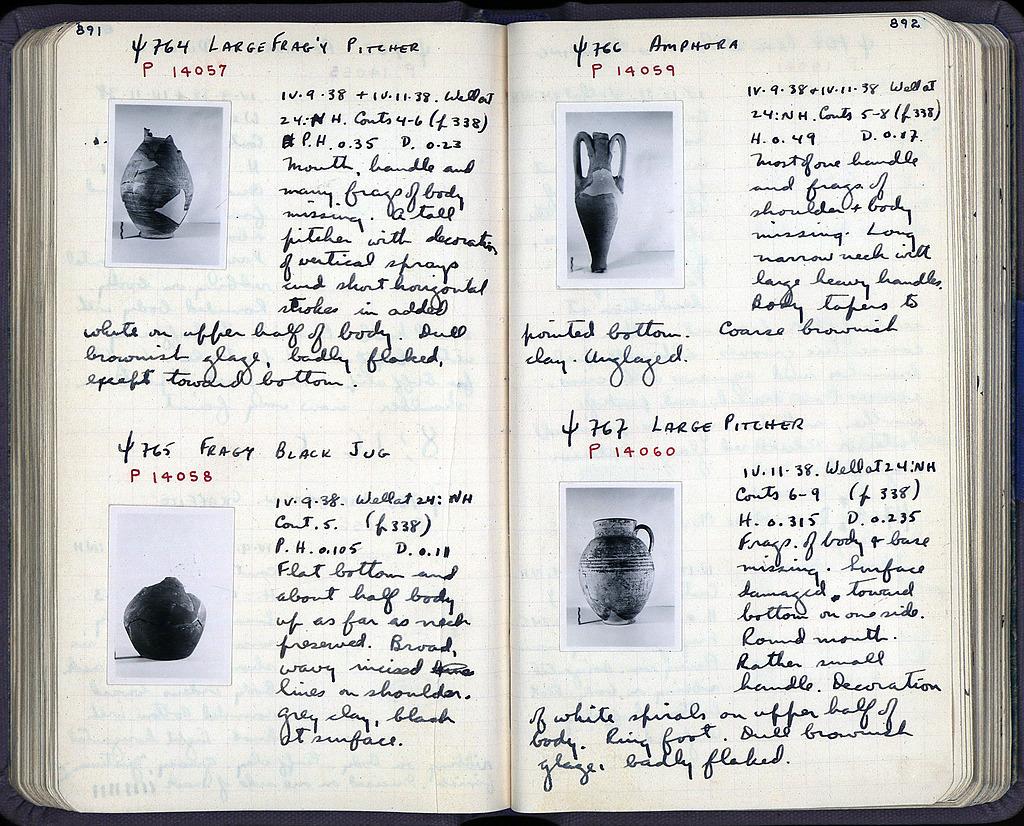 891
ψ764 LARGE FRAG'Y PITCHER
P 14057
IV.9.38 + IV.11.38. Well at
24:NH. Conts 4-6 (p 338)
P.H. 0.35 D. 0.23
Mouth, handle and
many frags of body
missing. A tall
pitcher with decoration
of vertical sprays
and short horizontal
strokes in added
white on upper half of body. Dull
brownish glaze, badly flaked,
except toward bottom
ψ765 FRAGY BLACK JUG
P 14058
IV.9.38. Well at 24:NH
Cont. 5. (p 338)
P.H. 0.105 D. 0.11
Flat bottom and
about half body
up as far as neck
preserved. Broad,
wavy incised
lines on shoulder.
Grey clay, black
at surface.
892
ψ766 AMPHORA
P 14059
IV.9.38 + IV.11.38 Well at
24:NH. Conts 5-8 (p 338)
H. 0.49 D. 0.17
Most of one handle
and frags of
shoulder + body
missing. Long
narrow neck with
large heavy handles.
Body tapers to
pointed bottom. Coarse brownish
clay. Unglazed.
ψ767 LARGE PITCHER
P 14060
IV.11.38. Well at 24:NH
Conts 6-9 (p 338)
H. 0.315 D. 0.235
Frags. of body + base
missing. Surface
damaged toward
bottom on one side.
Round mouth.
Rather small
handle. Decoration
of white spirals on upper half of
body. Ring foot. Dull brownish
glaze, badly flaked.